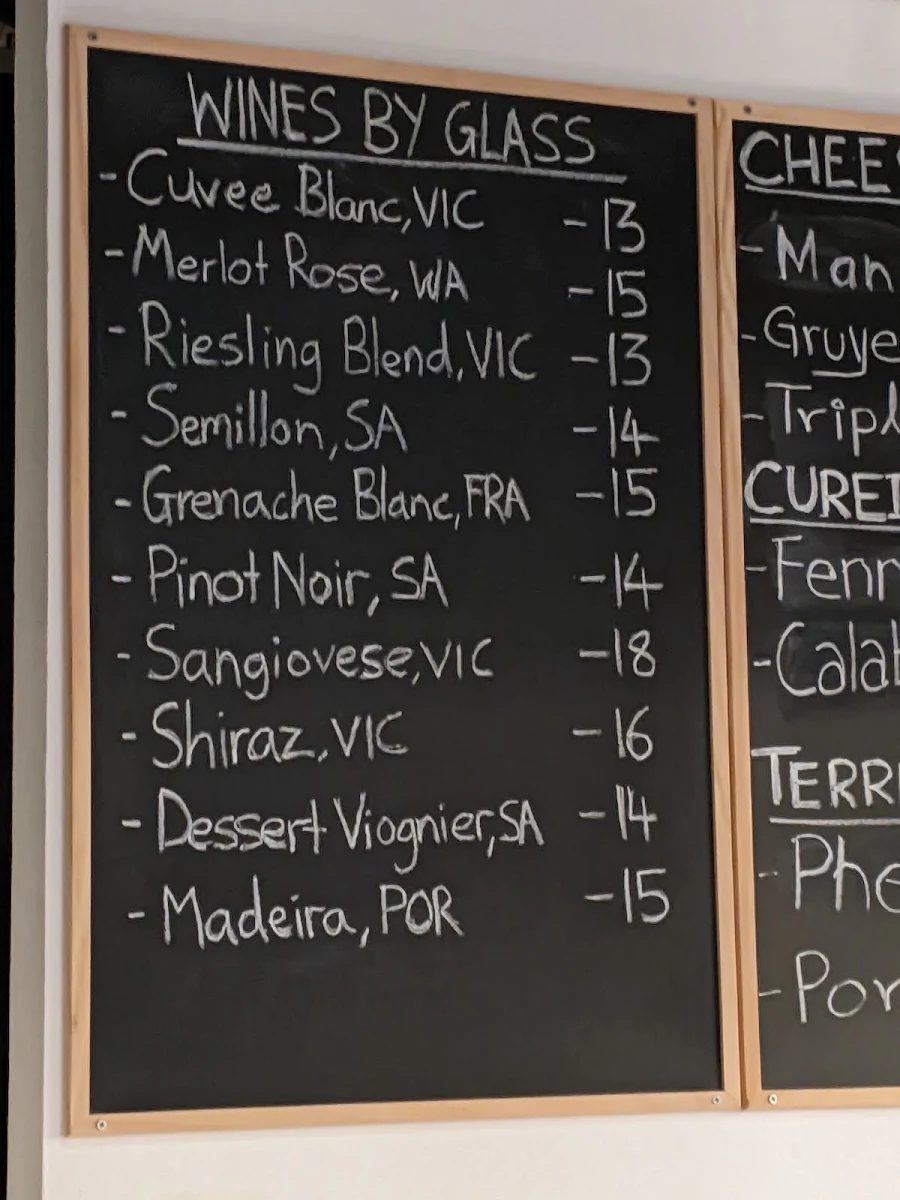 WINES BY GLASS
- Cuvee Blanc, VIC - 13
- Merlot Rose, WA - 15
- Riesling Blend, VIC - 13
- Semillon, SA - 14
- Grenache Blanc, FRA - 15
- Pinot Noir, SA - 14
- Sangiovese, VIC - 18
- Shiraz, VIC - 16
- Dessert Viognier, SA - 14
- Madeira, POR - 15
CHEES
- Man
- Gruye
- Tripl
CURED
- Fenn
- Calab
TERRI
- Phe
- Por